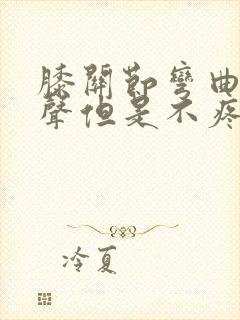 膝關節彎曲
聲但是不疼
冷夏